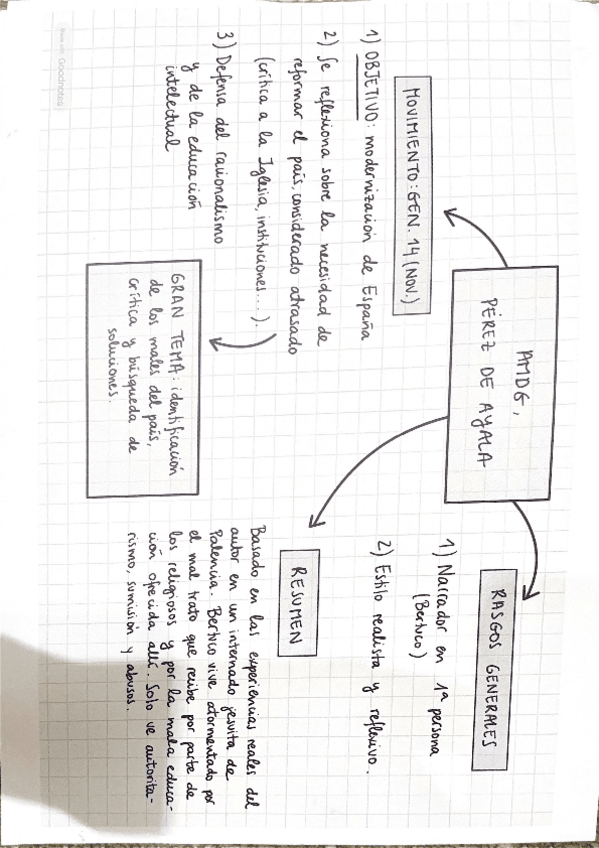 AMDG,
PÉREZ DE AYALA
MOVIMIENTO: GEN. 14 (NOV.)
1) OBJETIVO: modernización de España
2) Se reflexiona sobre la necesidad de
reformar el país, considerado atrasado
(crítica a la Iglesia, instituciones...).
3) Defensa del racionalismo
y de la educación
intelectual
GRAN TEMA: identificación
de los males del país,
crítica y búsqueda de
soluciones.
RASGOS GENERALES
1) Narrador en 1ª persona
(Bertuco)
2) Estilo realista y reflexivo.
RESUMEN
Basado en las experiencias reales del
autor en un internado jesuita de
Palencia. Bertuco vive atormentado por
el mal trato que recibe por parte de
los religiosos y por la mala educa-
ción ofrecida allí. Solo ve autorita-
rismo, sumisión y abusos.
Made with Goodnotes